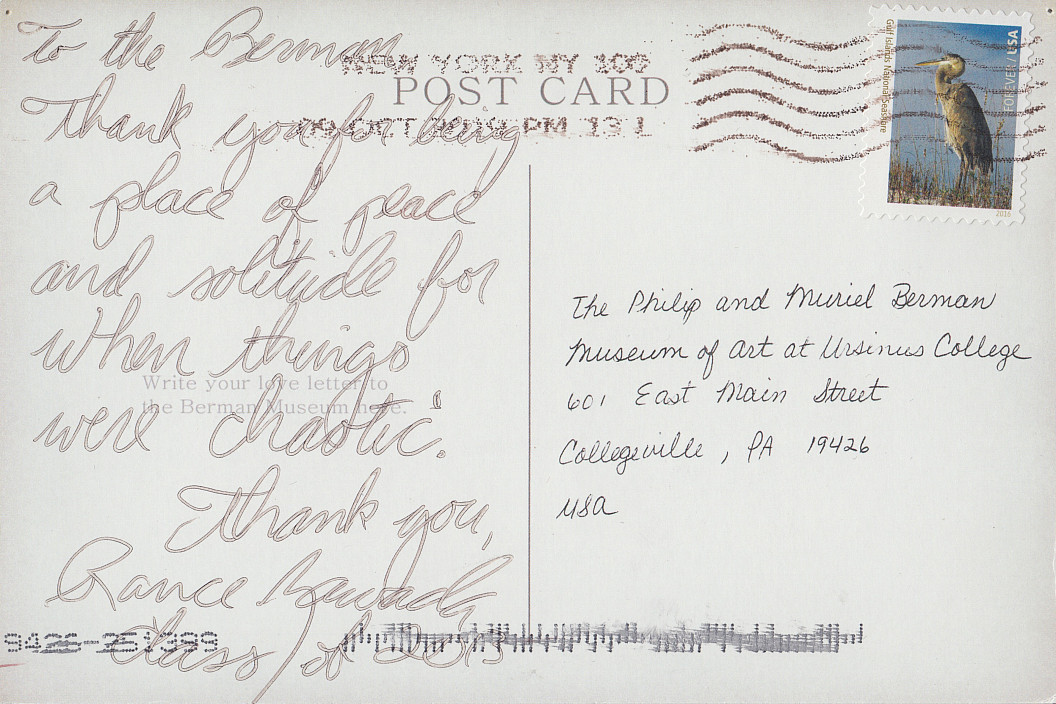 To the Berman
Thank you for being
a place of peace
and solitude for
when things
were chaotic.
Thank you,
Rance
Class of 2013
Write your love letter to
the Berman Museum here.
NEW YORK NY 100
POST CARD
OCT PM 13 L
FOREVER / USA
Gulf Islands National Seashore
2016
The Philip and Muriel Berman
Museum of Art at Ursinus College
601 East Main Street
Collegeville, PA 19426
USA